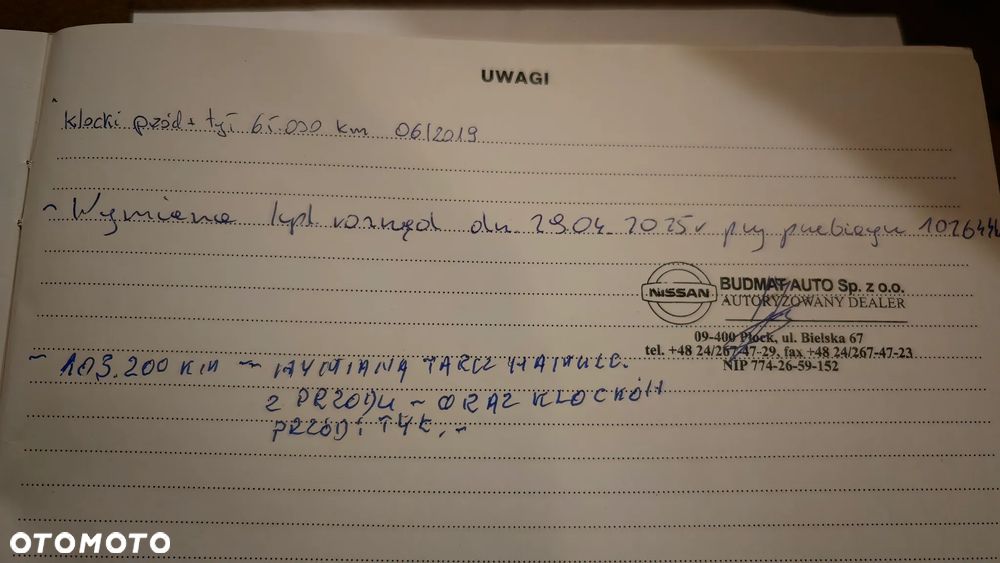 UWAGI
klocki przód + tył 65.000 km 06/2019
~ Wymiana kpl. rozrząd dn. 29.04.2025r przy przebiegu 102644k
NISSAN
BUDMAT AUTO Sp. z o.o.
AUTORYZOWANY DEALER
09-400 Płock, ul. Bielska 67
tel. +48 24/267-47-29, fax +48 24/267-47-23
NIP 774-26-59-152
~ 103.200 KM ~ WYMIANA TARCZ HAMULC.
Z PRZODU ~ ORAZ KLOCKÓW
PRZÓD i TYŁ. -
OTOMOTO